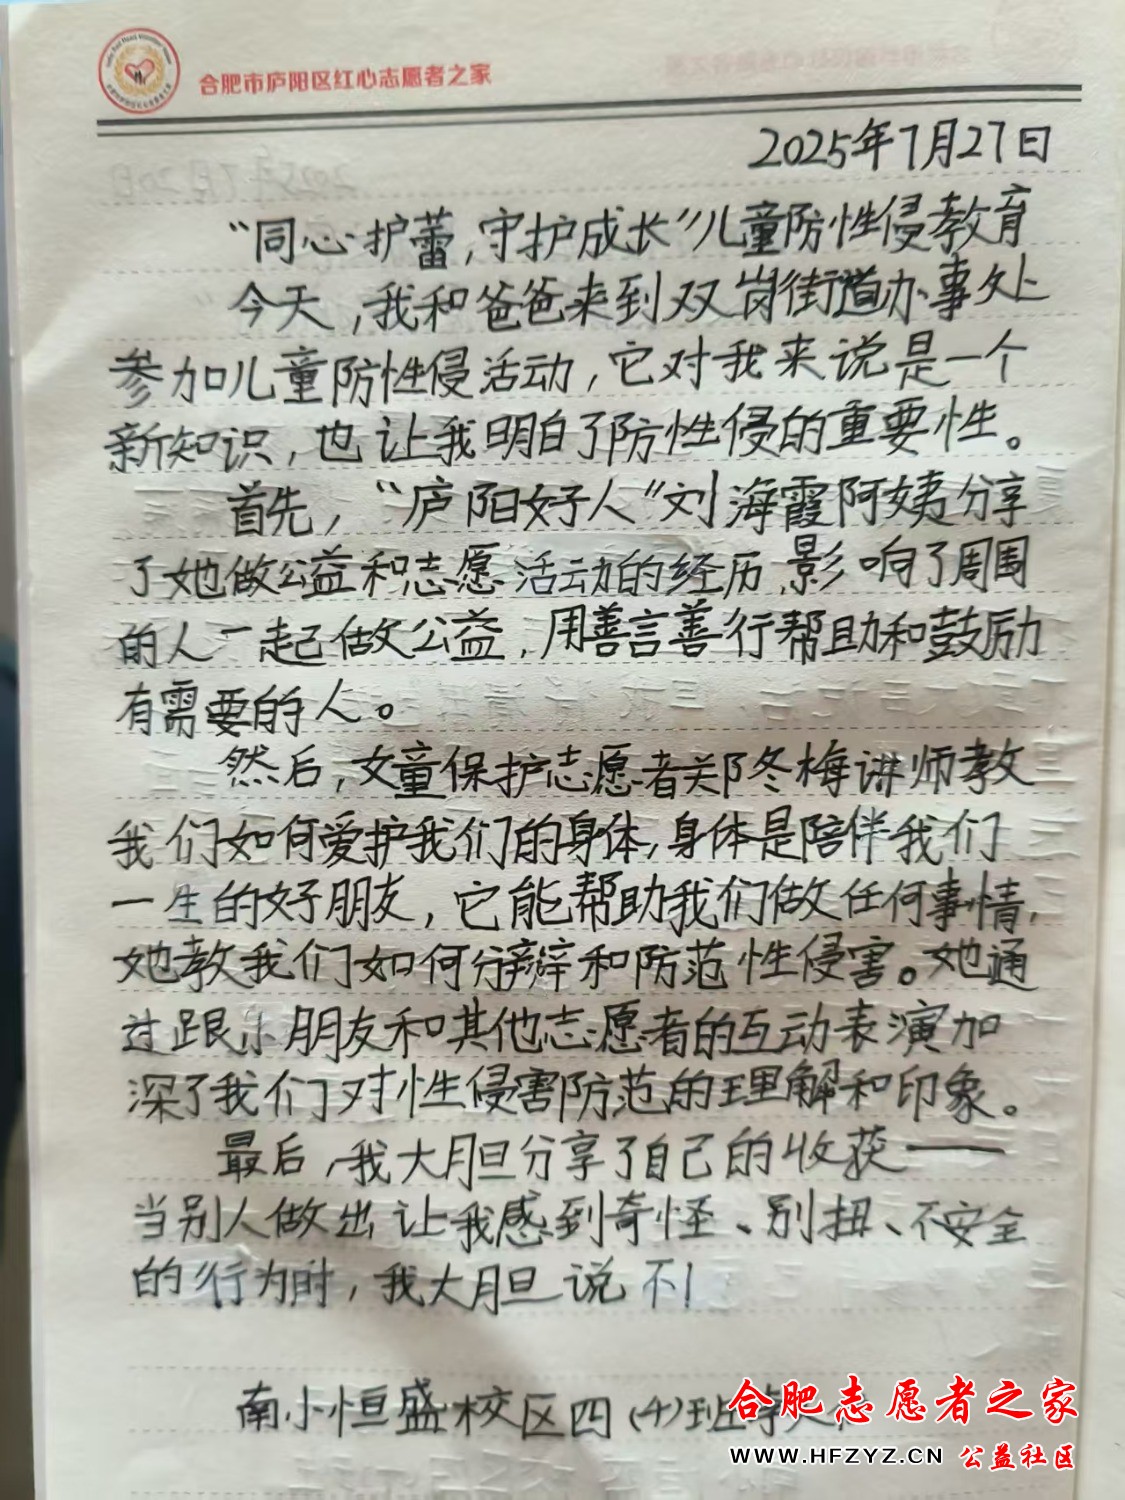 合肥市庐阳区红心志愿者之家
2025年7月27日
"同心护蕾,守护成长"儿童防性侵教育
今天,我和爸爸来到双岗街道办事处
参加儿童防性侵活动,它对我来说是一个
新知识,也让我明白了防性侵的重要性。
首先,"庐阳好人"刘海霞阿姨分享
了她做公益和志愿活动的经历,影响了周围
的人一起做公益,用善言善行帮助和鼓励
有需要的人。
然后,女童保护志愿者郑冬梅讲师教
我们如何爱护我们的身体,身体是陪伴我们
一生的好朋友,它能帮助我们做任何事情,
她教我们如何分辩和防范性侵害。她通
过跟小朋友和其他志愿者的互动表演加
深了我们对性侵害防范的理解和印象。
最后,我大胆分享了自己的收获——
当别人做出让我感到奇怪、别扭、不安全
的行为时,我大胆说不!
南小恒盛校区四(4)班
合肥志愿者之家
WWW.HFZYZ.CN 公益社区